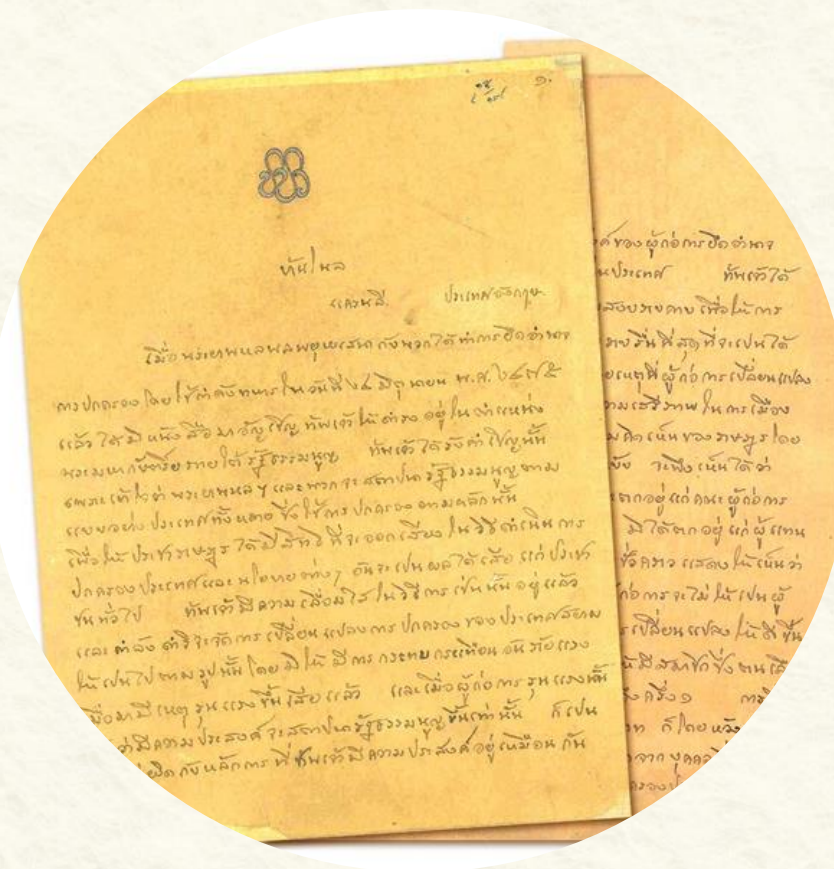 ๑.
บ้านโนล
แครนลี. ประเทศอังกฤษ.
เมื่อพระยาพหลพลพยุหเสนา กับพวกได้ทำการยึดอำนาจ
การปกครองโดยใช้กำลังทหารในวันที่ ๒๔ มิถุนายน พ.ศ. ๒๔๗๕
แล้ว ได้มีหนังสือมาอัญเชิญข้าพเจ้าให้ดำรงอยู่ในตำแหน่ง
พระมหากษัตริย์ภายใต้รัฐธรรมนูญ ข้าพเจ้าได้รับคำเชิญนั้น
เพราะเข้าใจว่า พระยาพหลฯ และพวกจะสถาปนารัฐธรรมนูญตาม
แบบอย่างประเทศทั้งหลาย ซึ่งใช้การปกครองตามหลักนั้น
เพื่อให้ประชาราษฎรได้มีสิทธิที่จะออกเสียงในวิธีดำเนินการ
ปกครองประเทศและนโยบายต่างๆ อันจะเป็นผลได้เสียแก่ประชา
ชนทั่วไป ข้าพเจ้ามีความเลื่อมใสในวิธีการเช่นนั้นอยู่แล้ว
และกำลังดำริจะจัดการเปลี่ยนแปลงการปกครองของประเทศสยาม
ให้เป็นไปตามรูปนั้น โดยมิให้มีการกระทบกระเทือนอันร้ายแรง
เมื่อมามีเหตุรุนแรงขึ้นเสียแล้ว และเมื่อผู้ก่อการรุนแรงนั้น
ว่ามีความประสงค์จะสถาปนารัฐธรรมนูญขึ้นเท่านั้น ก็เป็น
ผิดกับหลักการที่ข้าพเจ้ามีความประสงค์อยู่เหมือนกัน
ค์ของผู้ก่อการยึดอำนาจ
นประเทศ ข้าพเจ้าได้
สงบราบคาบเพื่อให้การ
ราบรื่นที่สุดที่จะเป็นได้
ยเหตุที่ผู้ก่อการเปลี่ยนแปลง
ามเสรีภาพในการเมือง
มคิดเห็นของราษฎรโดย
จะพึงเห็นได้ว่า
ตกอยู่แก่คณะผู้ก่อการ
มิได้ตกอยู่แก่ผู้แทน
ชั่วคราว แสดงให้เห็นว่า
ก่อการจะไม่ให้เป็นผู้
รเปลี่ยนแปลงให้ดีขึ้น
ห้มีสมาชิกซึ่งตนเลื
ครึ่ง ๑ การ
ก็โดยหวัง
จากบุคคล